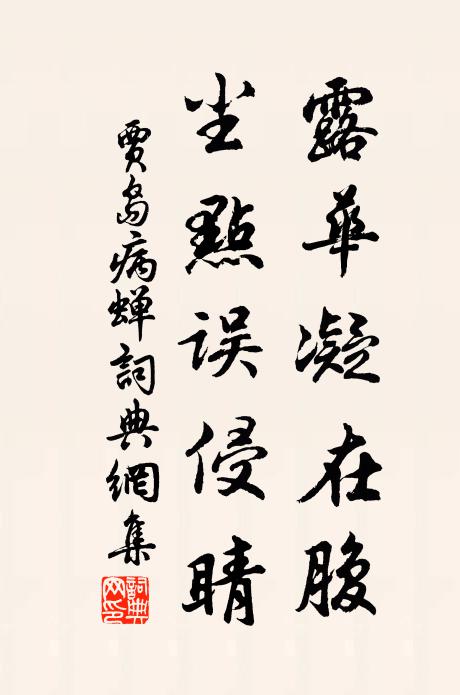 露華凝在腹
尘點误侵睛
賈島病蝉詞典網集
詞典网印